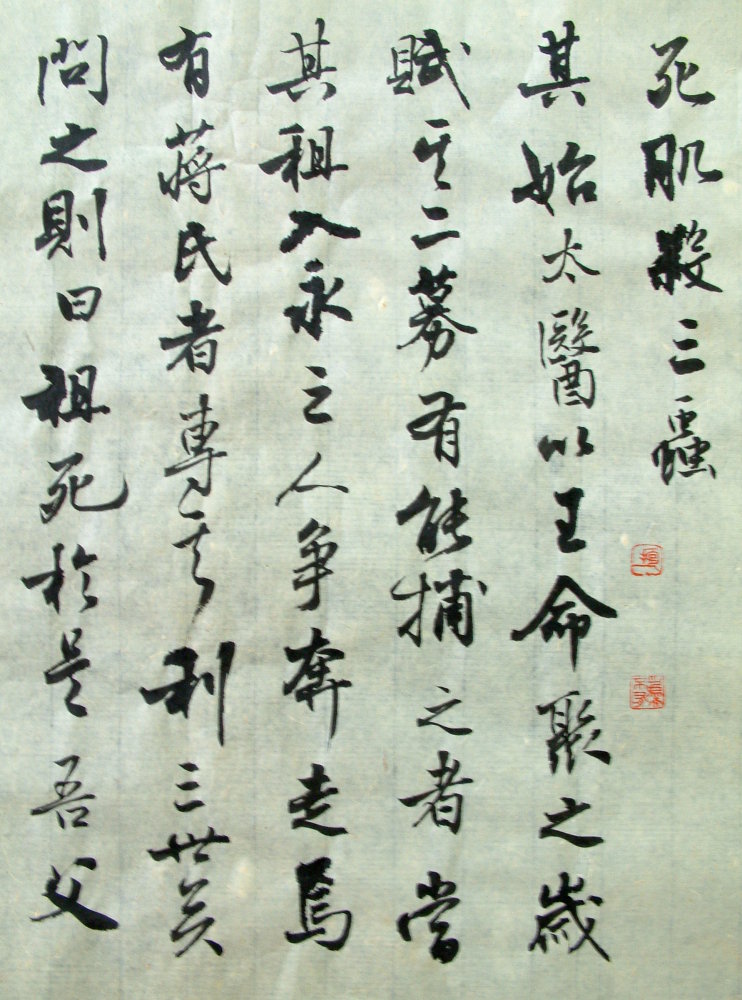 死肌殺三蟲
其始太醫以王命聚之歲
賦其二募有能捕之者當
其租入永之人争奔走焉
有蔣氏者專其利三世矣
問之則曰祖死於是吾父